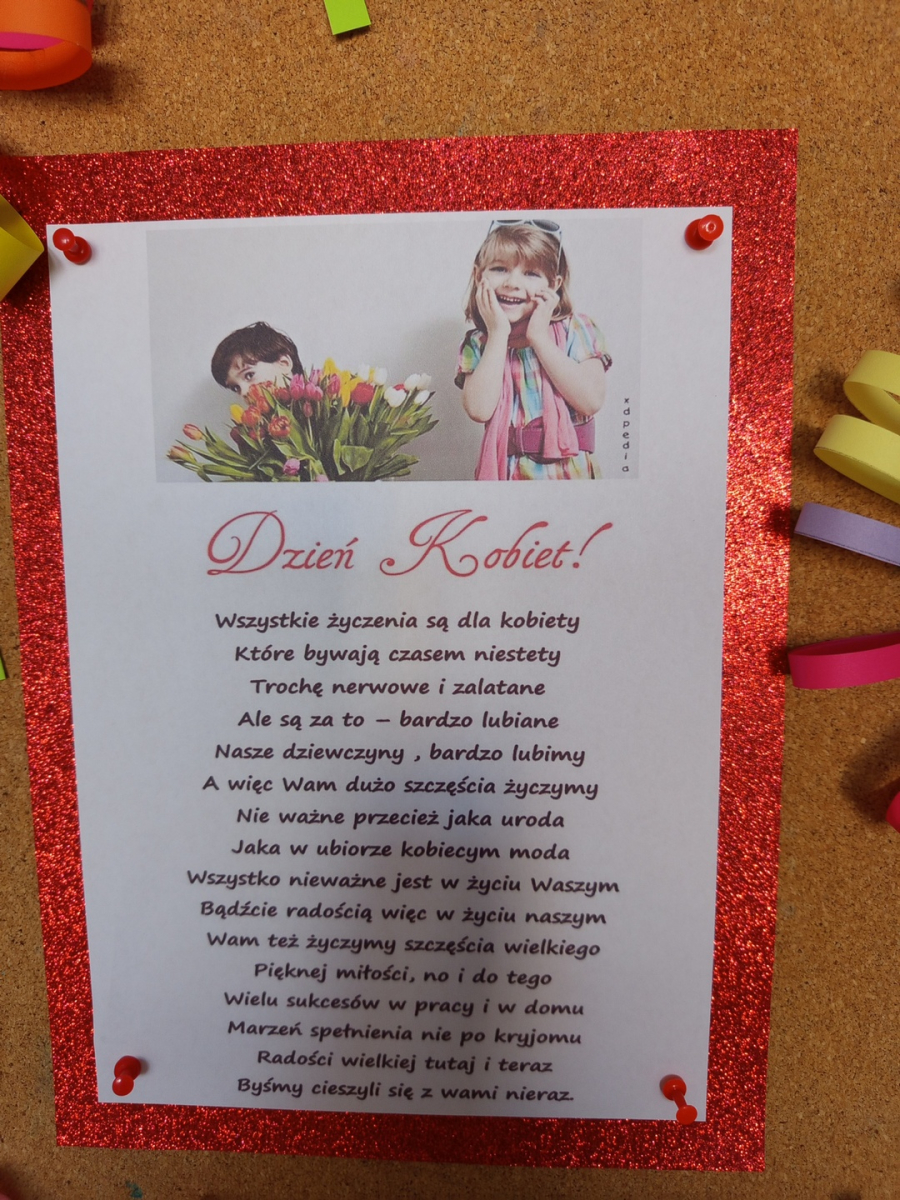 xdpedia
Dzień Kobiet!
Wszystkie życzenia są dla kobiety
Które bywają czasem niestety
Trochę nerwowe i zalatane
Ale są za to – bardzo lubiane
Nasze dziewczyny , bardzo lubimy
A więc Wam dużo szczęścia życzymy
Nie ważne przecież jaka uroda
Jaka w ubiorze kobiecym moda
Wszystko nieważne jest w życiu Waszym
Bądźcie radością więc w życiu naszym
Wam też życzymy szczęścia wielkiego
Pięknej miłości, no i do tego
Wielu sukcesów w pracy i w domu
Marzeń spełnienia nie po kryjomu
Radości wielkiej tutaj i teraz
Byśmy cieszyli się z wami nieraz.